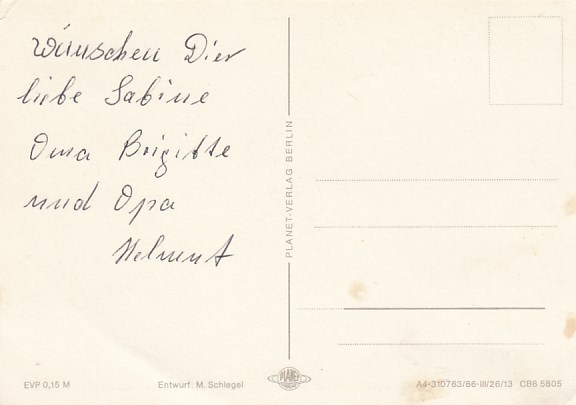 wünschen Dier
liebe Sabine
Oma Brigitte
und Opa
Helmut
PLANET-VERLAG BERLIN
EVP 0,15 M
Entwurf: M. Schlegel
PLANET
A4-310763/86-III/26/13 CB6 5805